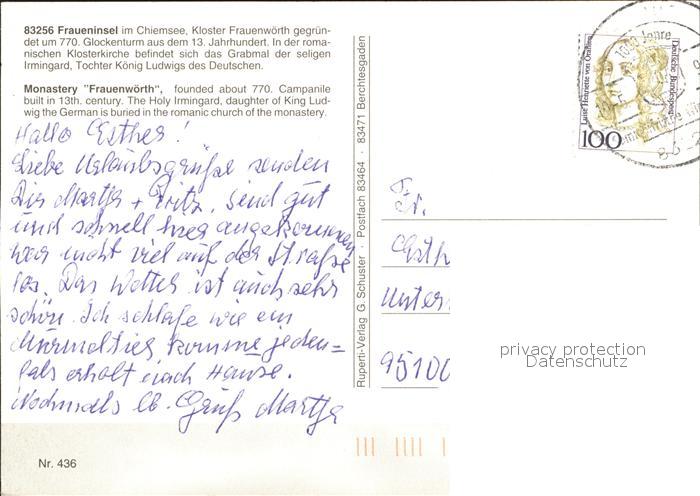 83256 Fraueninsel im Chiemsee, Kloster Frauenwörth gegrün-
det um 770. Glockenturm aus dem 13. Jahrhundert. In der roma-
nischen Klosterkirche befindet sich das Grabmal der seligen
Irmingard, Tochter König Ludwigs des Deutschen.
Monastery "Frauenwörth", founded about 770. Campanile
built in 13th. century. The Holy Irmingard, daughter of King Lud-
wig the German is buried in the romanic church of the monastery.
Hallo Esther!
Liebe Urlaubsgrüße senden
Dir Martha + Fritz. Sind gut
und schnell hier angekommen,
war nicht viel auf der Straße
los. Das Wetter ist auch sehr
schön. Ich schlafe wie ein
Murmeltier, komme jeden=
falls erholt nach Hause.
Nochmals lb. Gruß Martha
Nr. 436
Ruperti-Verlag G. Schuster · Postfach 83464 · 83471 Berchtesgaden
Luise Henriette von Oranien
Deutsche Bundespost
100
Fr.
Esth
Unter
95100
privacy protection
Datenschutz